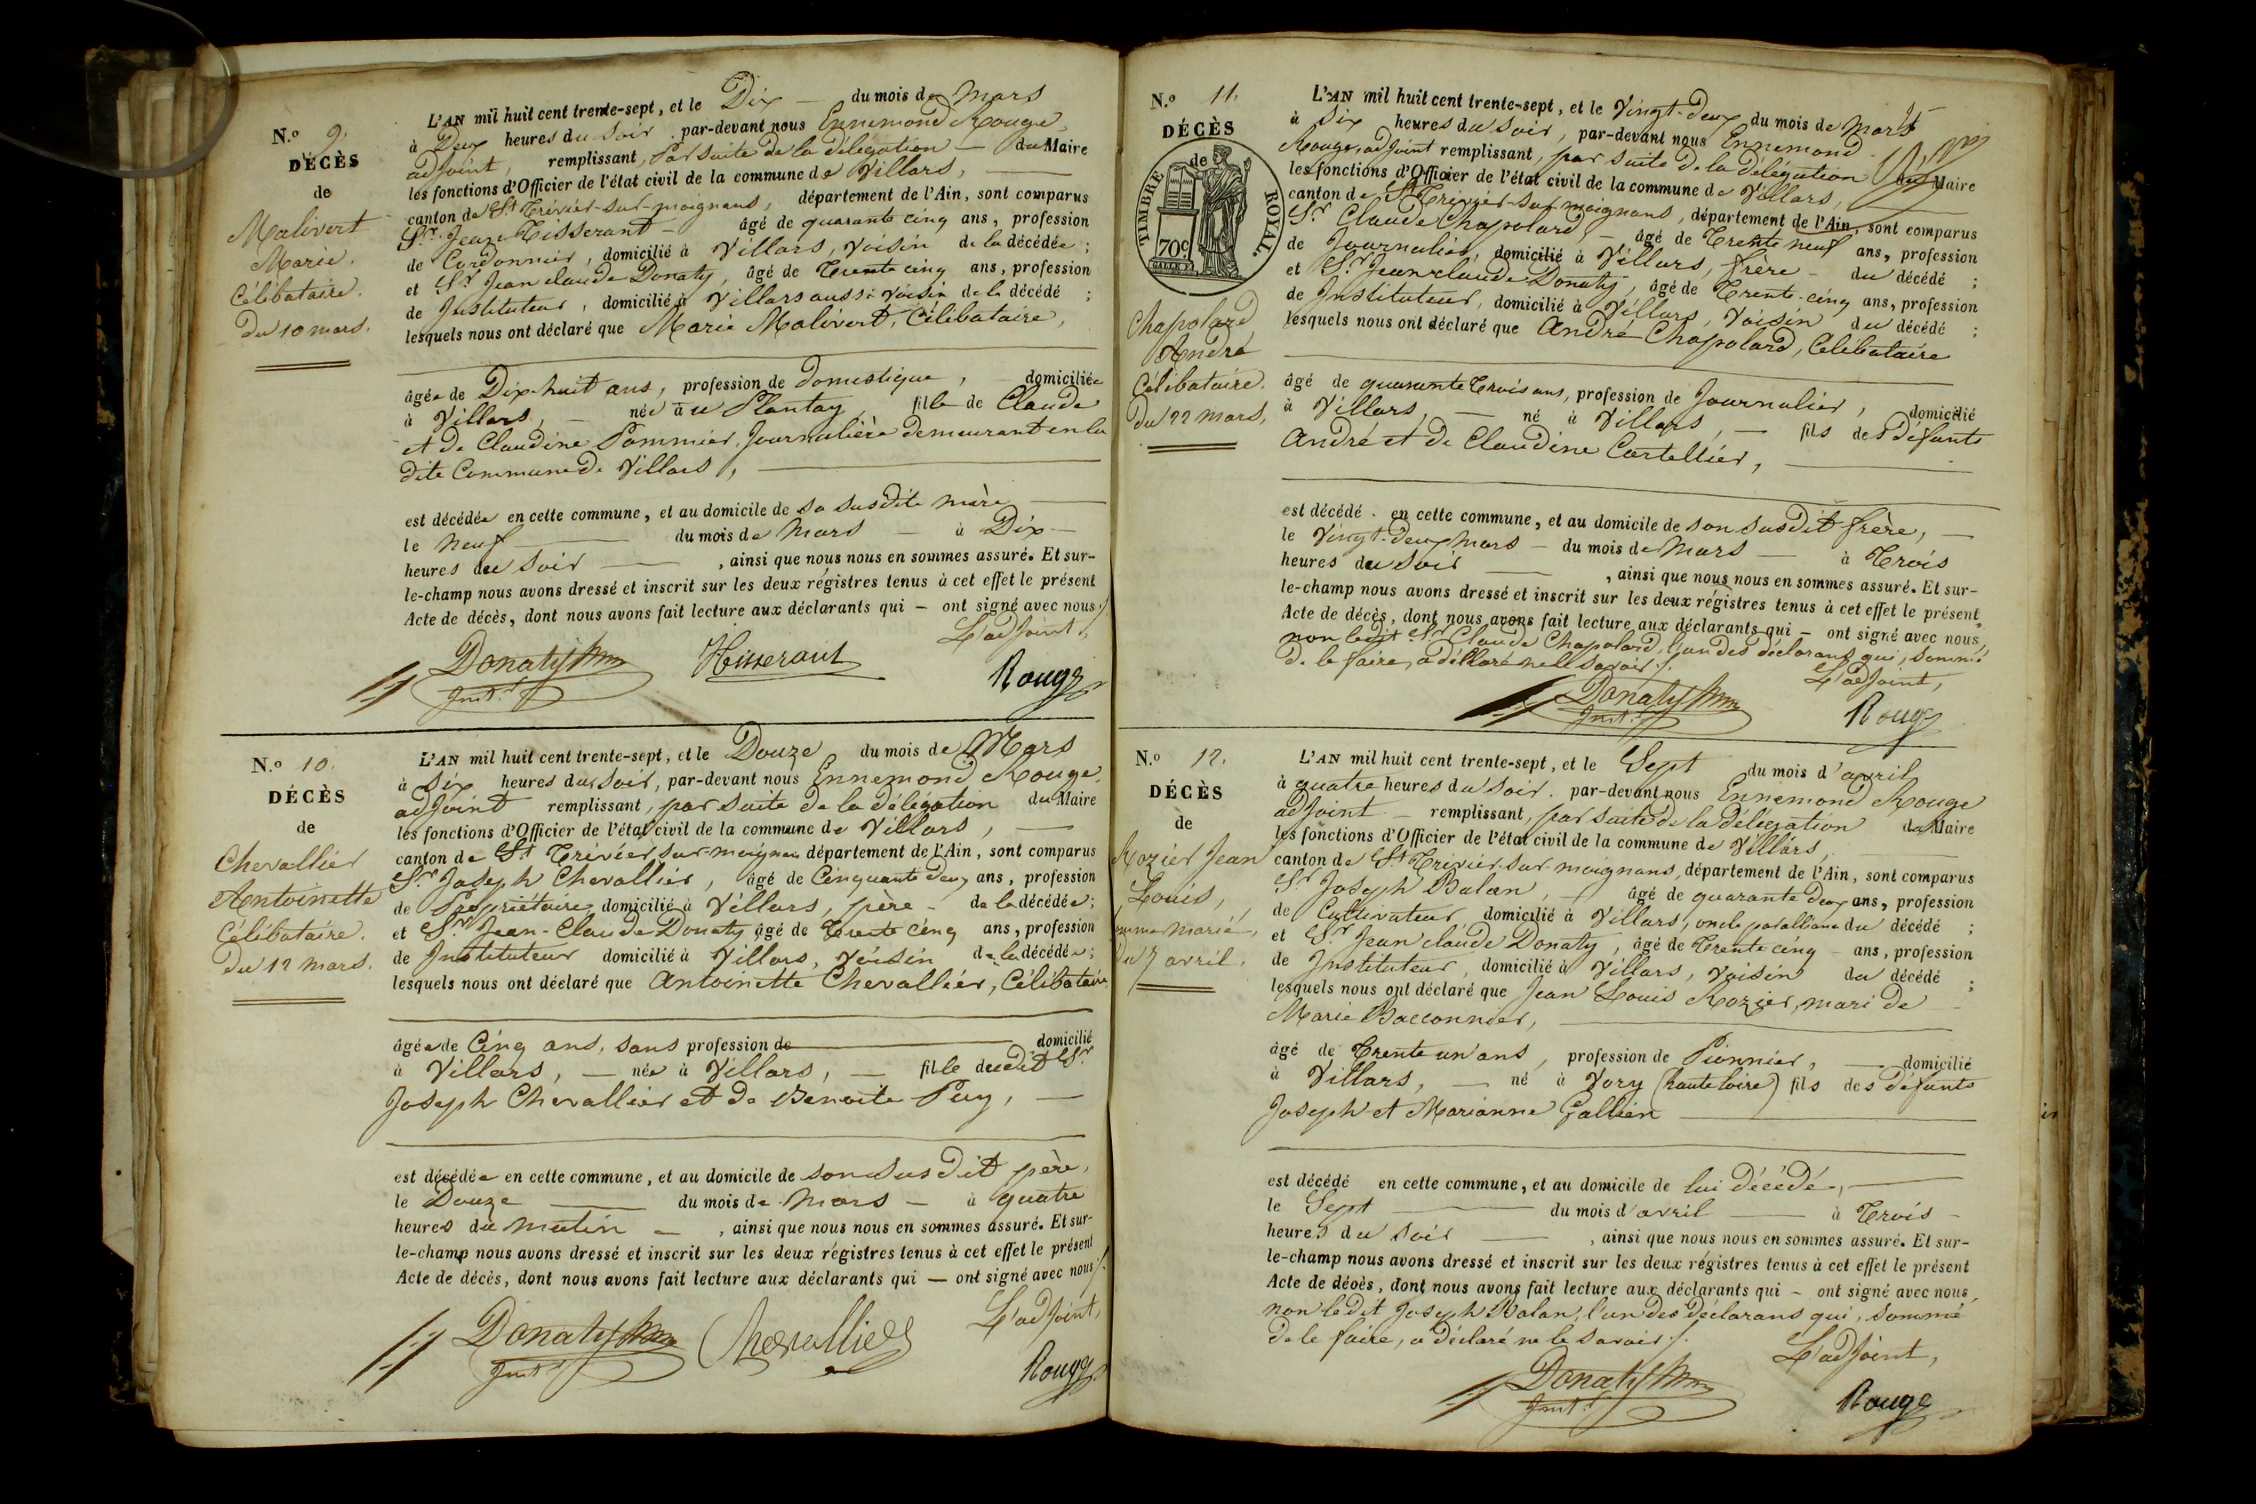 N.º 9.
DÉCÈS
de
Malivert
Marie.
Célibataire.
Du 10 mars.
L'AN mil huit cent trente-sept, et le Dix — du mois de Mars
à Deux heures du soir par-devant nous Ennemond Rouge,
adjoint, remplissant, par suite de la délégation — du Maire
les fonctions d'Officier de l'état civil de la commune de Villars, —
canton de St Trivier-sur-moignans, département de l'Ain, sont comparus
Sr. Jean Tisserant — âgé de quarante cinq ans, profession
de Cordonnier, domicilié à Villars, voisin de la décédée ;
et Sr Jean claude Donaty, âgé de Trente cinq ans, profession
de Instituteur, domicilié à Villars aussi voisin de la décédé ;
lesquels nous ont déclaré que Marie Malivert, Célibataire,
âgée de Dix-huit ans, profession de Domestique, domiciliée
à Villars, — née au Plantay, fille de Claude
et de Claudine Pommier, Journalière demeurant en la
dite Commune de Villars, —
est décédée en cette commune, et au domicile de sa susdite mère —
le neuf — du mois de Mars — à Dix —
heures du soir — , ainsi que nous nous en sommes assuré. Et sur-
le-champ nous avons dressé et inscrit sur les deux régistres tenus à cet effet le présent
Acte de décès, dont nous avons fait lecture aux déclarants qui — ont signé avec nous ./.
L'adjoint,
Donaty
Instr.
Tisserant
Rouge
N.º 10.
DÉCÈS
de
Chevallier
Antoinette
Célibataire.
Du 12 mars.
L'AN mil huit cent trente-sept, et le Douze du mois de Mars
à Six heures du soir, par-devant nous Ennemond Rouge,
adjoint remplissant, par suite de la délégation du Maire
les fonctions d'Officier de l'état civil de la commune de Villars, —
canton de St Trivier sur-moignans département de l'Ain, sont comparus
Sr Joseph Chevallier, âgé de Cinquante deux ans, profession
de Propriétaire, domicilié à Villars, père — de la décédée ;
et Sr Jean-Claude Donaty, âgé de Trente cinq ans, profession
de Instituteur domicilié à Villars, voisin de la décédée ;
lesquels nous ont déclaré que Antoinette Chevallier, Célibataire
âgée de Cinq ans, sans profession de — domicilié
à Villars, — née à Villars, — fille dudit Sr
Joseph Chevallier et de Benoite Puy, —
est décédée en cette commune, et au domicile de son susdit père,
le Douze — du mois de Mars — à quatre
heures du matin — , ainsi que nous nous en sommes assuré. Et sur-
le-champ nous avons dressé et inscrit sur les deux régistres tenus à cet effet le présent
Acte de décès, dont nous avons fait lecture aux déclarants qui — ont signé avec nous ./.
L'adjoint,
Donaty
Instr.
Chevallier
Rouge
N.º 11.
DÉCÈS
de
TIMBRE ROYAL.
70c.
Chapolard
André
Célibataire.
Du 22 mars,
L'AN mil huit cent trente-sept, et le Vingt-deux du mois de Mars
à Six heures du soir, par-devant nous Ennemond
Rouge, adjoint remplissant, par suite de la délégation du Maire
les fonctions d'Officier de l'état civil de la commune de Villars, —
canton de St Trivier-sur-moignans, département de l'Ain, sont comparus
Sr Claude Chapolard, — âgé de Trente neuf ans, profession
de Journalier, domicilié à Villars, frère — du décédé ;
et Sr Jean claude Donaty, âgé de Trente-cinq ans, profession
de Instituteur, domicilié à Villars, voisin du décédé ;
lesquels nous ont déclaré que André Chapolard, Célibataire
âgé de quarante Trois ans, profession de Journalier, domicilié
à Villars, — né à Villars, — fils des Défunts
André et de Claudine Cartellier, —
est décédé en cette commune, et au domicile de son susdit frère, —
le Vingt-deux Mars — du mois de Mars — à Trois
heures du soir — , ainsi que nous nous en sommes assuré. Et sur-
le-champ nous avons dressé et inscrit sur les deux régistres tenus à cet effet le présent
Acte de décès, dont nous avons fait lecture aux déclarants qui — ont signé avec nous,
non ledit Sr Claude Chapolard, l'un des déclarans qui, sommé
de le faire, a déclaré ne le savoir ./.
L'adjoint,
Donaty
Instr.
Rouge
N.º 12.
DÉCÈS
de
Rozier Jean
Louis,
homme marié,
Du 7 avril.
L'AN mil huit cent trente-sept, et le Sept du mois d'avril
à quatre heures du soir. par-devant nous Ennemond Rouge
adjoint — remplissant, par suite de la délégation du Maire
les fonctions d'Officier de l'état civil de la commune de Villars, —
canton de St Trivier-sur-moignans, département de l'Ain, sont comparus
Sr Joseph Balan, — âgé de quarante deux ans, profession
de Cultivateur, domicilié à Villars, oncle par alliance du décédé ;
et Sr Jean claude Donaty, âgé de Trente cinq — ans, profession
de Instituteur, domicilié à Villars, voisin du décédé ;
lesquels nous ont déclaré que Jean Louis Rozier, mari de
Marie Bacconnier, —
âgé de Trente un ans, profession de Pionnier, — domicilié
à Villars, — né à Vory (haute loire) fils des Défunts
Joseph et Marianne Gallien —
est décédé en cette commune, et au domicile de lui décédé, —
le Sept — du mois d'avril — à Trois —
heures du soir — , ainsi que nous nous en sommes assuré. Et sur-
le-champ nous avons dressé et inscrit sur les deux régistres tenus à cet effet le présent
Acte de décès, dont nous avons fait lecture aux déclarants qui — ont signé avec nous,
non ledit Joseph Balan, l'un des déclarans qui, sommé
de le faire, a déclaré ne le savoir ./.
L'adjoint,
Donaty
Instr.
Rouge